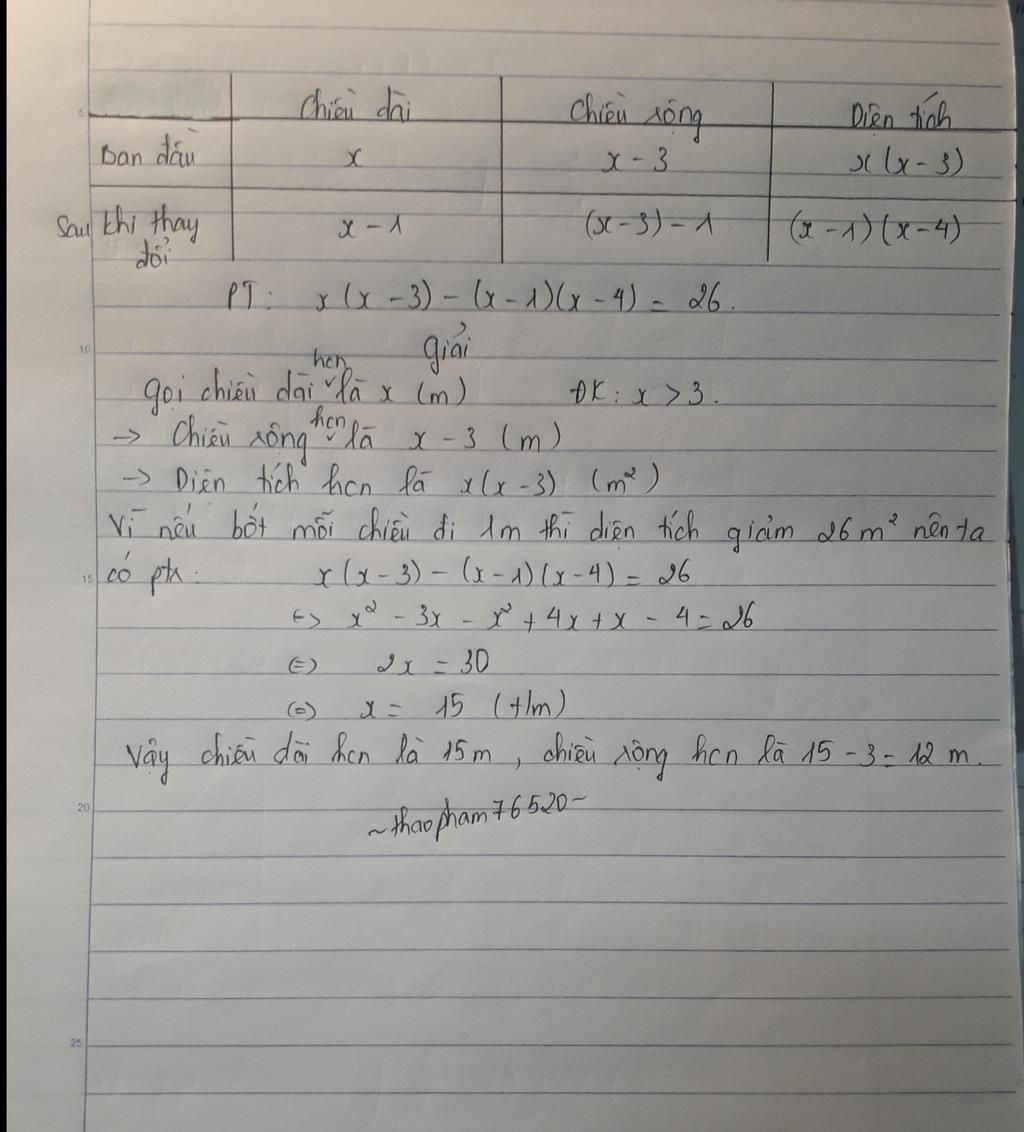 Chiều dài Chiều rộng Diện tích
Ban đầu x x - 3 x(x - 3)
Sau khi thay đổi x - 1 (x - 3) - 1 (x - 1)(x - 4)
PT: x(x - 3) - (x - 1)(x - 4) = 26.
10
Giải
Gọi chiều dài hcn là x (m) ĐK: x > 3.
-> Chiều rộng hcn là x - 3 (m)
-> Diện tích hcn là x(x - 3) (m²)
Vì nếu bớt mỗi chiều đi 1m thì diện tích giảm 26m² nên ta
15 có ptr: x(x - 3) - (x - 1)(x - 4) = 26
<=> x² - 3x - x² + 4x + x - 4 = 26
<=> 2x = 30
<=> x = 15 (t/m)
Vậy chiều dài hcn là 15m, chiều rộng hcn là 15 - 3 = 12 m.
20
~thaopham76520~
25